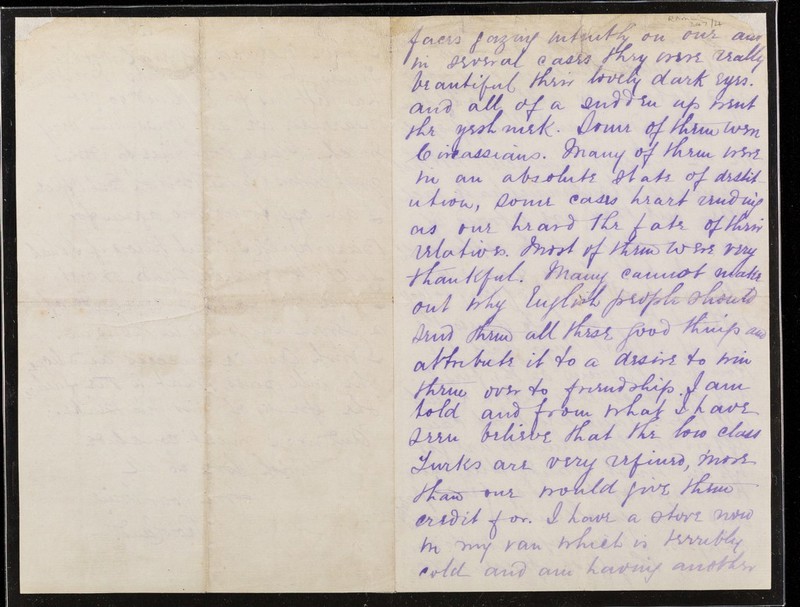 faces gazing intently on one and
in several cases they were really
beautiful their lovely dark eyes.
and all of a sudden up went
the yeshmek. Some of them were
Circassians. Many of them were
in an absolute state of destit
ution, some cases heart rending
as one heard the fate of their
relatives. Most of them were very
thankful. Many cannot make
out why English people should
send them all these good things and
attribute it to a desire to win
them over to friendship. I am
told and from what I have
seen believe that the low class
Turks are very refined, more
than one would give them
credit for. I have a stove now
in my van which is terribly
cold and am having another